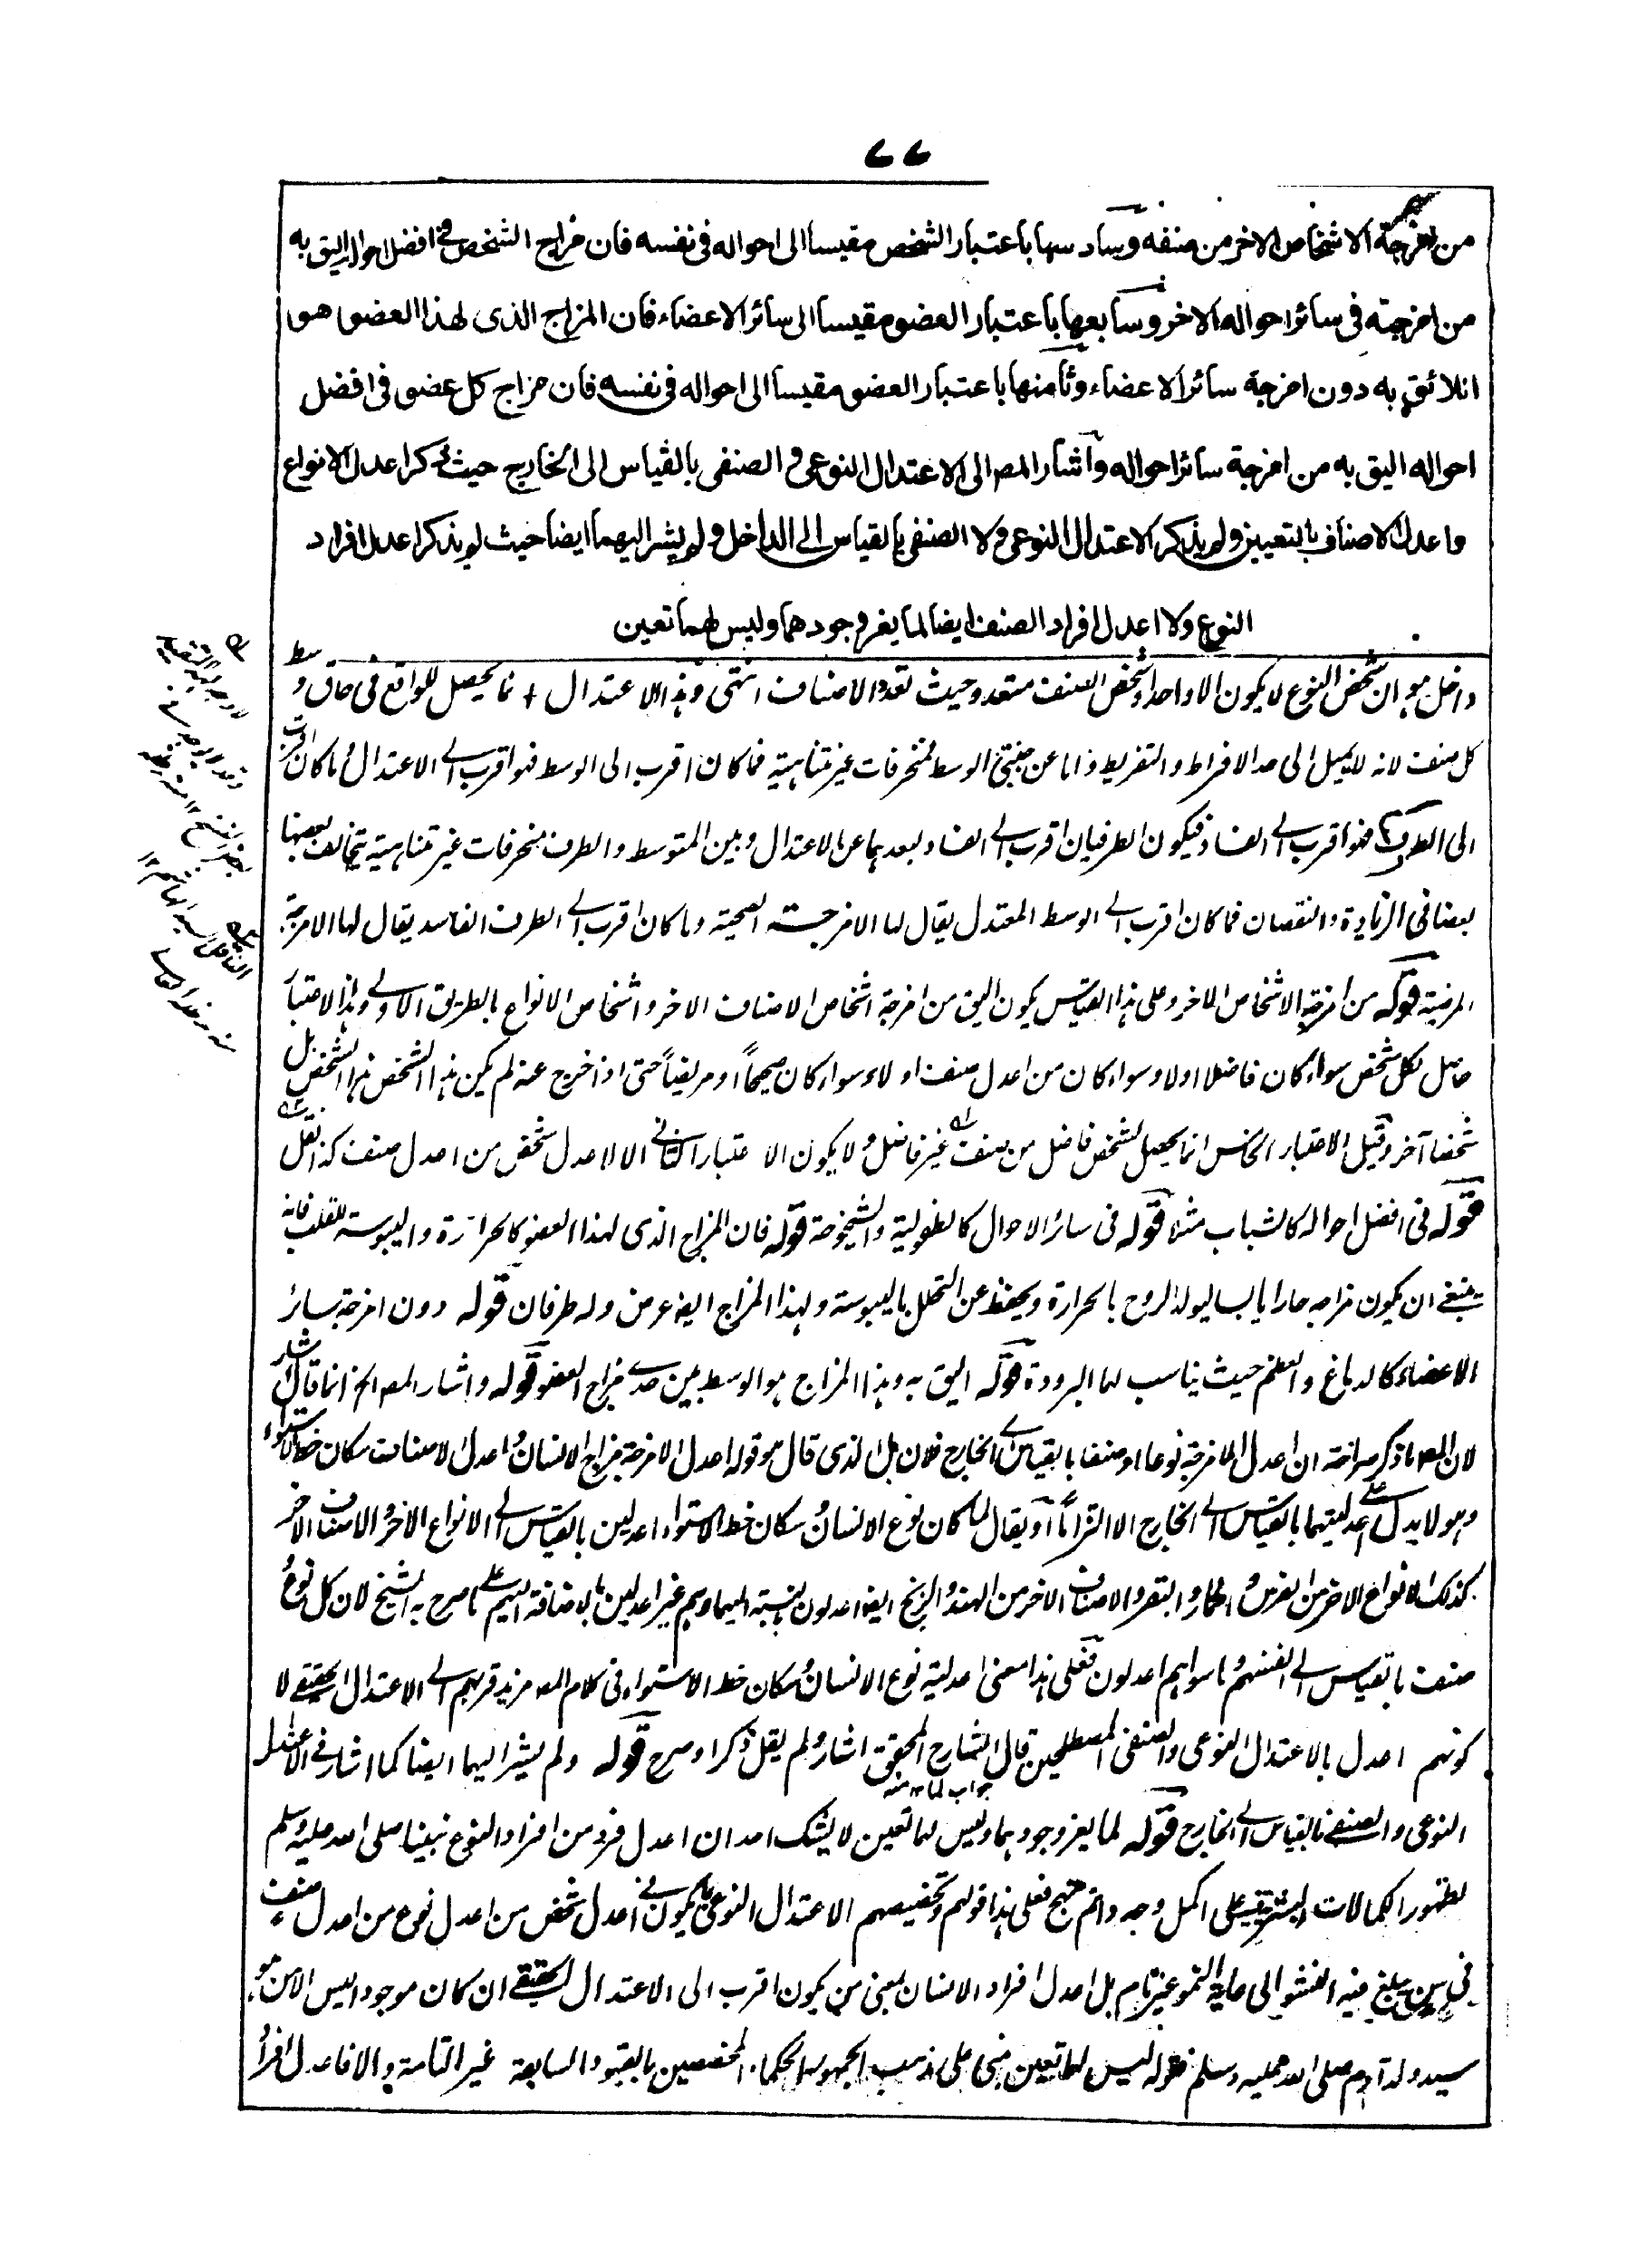 ٧٧
من امزجة الاشخاص الاخر من صنفه وسادسها باعتبار الشخص مقيسا الى احواله فى نفسه فان مزاج الشخص فى افضل احواله اليق به
من امزجته فى سائر احواله الاخر وسابعها باعتبار العضو مقيسا الى سائر الاعضاء فان المزاج الذى لهذا العضو هو
اللائق به دون امزجة سائر الاعضاء وثامنها باعتبار العضو مقيسا الى احواله فى نفسه فان مزاج كل عضو فى افضل
احواله اليق به من امزجة سائر احواله واشار المص الى الاعتدال النوعى والصنفى بالقياس الى الخارج حيث ذكر اعدل الانواع
واعدل الاصناف بالتعيين ولم يذكر الاعتدال النوعى ولا الصنفى بالقياس الى الداخل ولم يشر اليهما ايضا حيث لم يذكر اعدل افراد
النوع ولا اعدل افراد الصنف ايضا لما يغر وجودهما وليس لهما تعين
داخل هو ان شخص النوع لا يكون الا واحدا وشخص الصنف متعدد حيث تعدد الاصناف انتهى وهذا الاعتدال انما يحصل للواقع فى حاق وسط
كل صنف لانه لا يميل الى حد الافراط والتفريط واما عن جنبتى الوسط فمنحرفات غير متناهية فما كان اقرب الى الوسط فهو اقرب الى الاعتدال وما كان اقرب
الى الطرف فهو اقرب الى الفساد فيكون الطرفان اقرب الى الفساد لبعدهما عن الاعتدال وبين المتوسط والطرف منحرفات غير متناهية يخالف بعضها
بعضا فى الزيادة والنقصان فما كان اقرب الى الوسط المعتدل يقال لها الامزجة الصحية وما كان اقرب الى الطرف الفاسد يقال لها الامزجة
المرضية قوله من امزجة الاشخاص الاخر وعلى هذا القياس يكون اليق من امزجة اشخاص الاصناف الاخر واشخاص الانواع بالطريق الاولى وهذا الاعتبار
حاصل لكل شخص سواء كان فاضلا اولا وسواء كان من اعدل صنف اولا وسواء كان صحيحا او مريضا حتى اذا خرج عنه لم يكن هذا الشخص هذا الشخص بل
شخصا آخر وقيل الاعتبار الخامس انما يحصل لشخص فاضل من صنف غير فاضل ولا يكون الاعتبار الثانى الا لاعدل شخص من اعدل صنف كذا نقل
قوله فى افضل احواله كالشباب مثلا قوله فى سائر الاحوال كالطفولية والشيخوخة قوله فان المزاج الذى لهذا العضو كالحرارة واليبوسة للقلب فانه
ينبغى ان يكون مزاجه حارا يابسا ليولد الروح بالحرارة ويحفظ عن التحلل باليبوسة ولهذا المزاج ايضا عرض وله طرفان قوله دون امزجة سائر
الاعضاء كالدماغ والعظم حيث يناسب لها البرودة قوله اليق به وهذا المزاج هو الوسط بين حدى مزاج العضو قوله واشار المص الخ انما قال اشار
لان المص ما ذكر صراحة ان اعدل الامزجة نوعا او صنفا بالقياس الى الخارج فلان بل الذى قال هو قوله اعدل الامزجة مزاج الانسان واعدل الاصناف سكان خط الاستواء
وهو لا يدل على اعدليتهما بالقياس الى الخارج الا التزاما او يقال لما كان نوع الانسان وسكان خط الاستواء اعدلين بالقياس الى الانواع الاخر والاصناف الاخر
كذلك الانواع الاخر من الفرس والحمار والبقر والاصناف الاخر من الهند والزنج ايضا اعدلون بنسبة اليهما وهم غير اعدلين بالاضافة اليهم على ما صرح به الشيخ لان كل نوع و
صنف بالقياس الى انفسهم وما سواهم اعدلون فعلى هذا معنى اعدلية نوع الانسان وسكان خط الاستواء فى كلام المص مزيد قربهم الى الاعتدال الحقيقى لا
كونهم اعدل بالاعتدال النوعى والصنفى المصطلحين قال الشارح المحقق اشار ولم يقل ذكر او صرح قوله ولم يشر اليهما ايضا كما اشار فى الاعتدال
جواب لما ١٢ منه
النوعى والصنفى بالقياس الى الخارج قوله لما يغر وجودهما وليس لهما تعين لا يشك احد ان اعدل فرد من افراد النوع نبينا صلى الله عليه وسلم
لظهور الكمالات البشرية على اكمل وجه واتم نهج فعلى هذا قولهم وتخصيصهم الاعتدال النوعى بما يكون فى اعدل شخص من اعدل نوع من اعدل صنف
فى سن يبلغ فيه النشو الى غاية النمو غير تام بل اعدل افراد الانسان بمعنى من يكون اقرب الى الاعتدال الحقيقى ان كان موجودا ليس الا من هو
سيد ولد آدم صلى الله عليه وسلم فقوله ليس لهما تعين مبنى على مذهب الجمهور الحكماء المخصصين بالقيود السابعة غير التامة والا فاعدل افراد